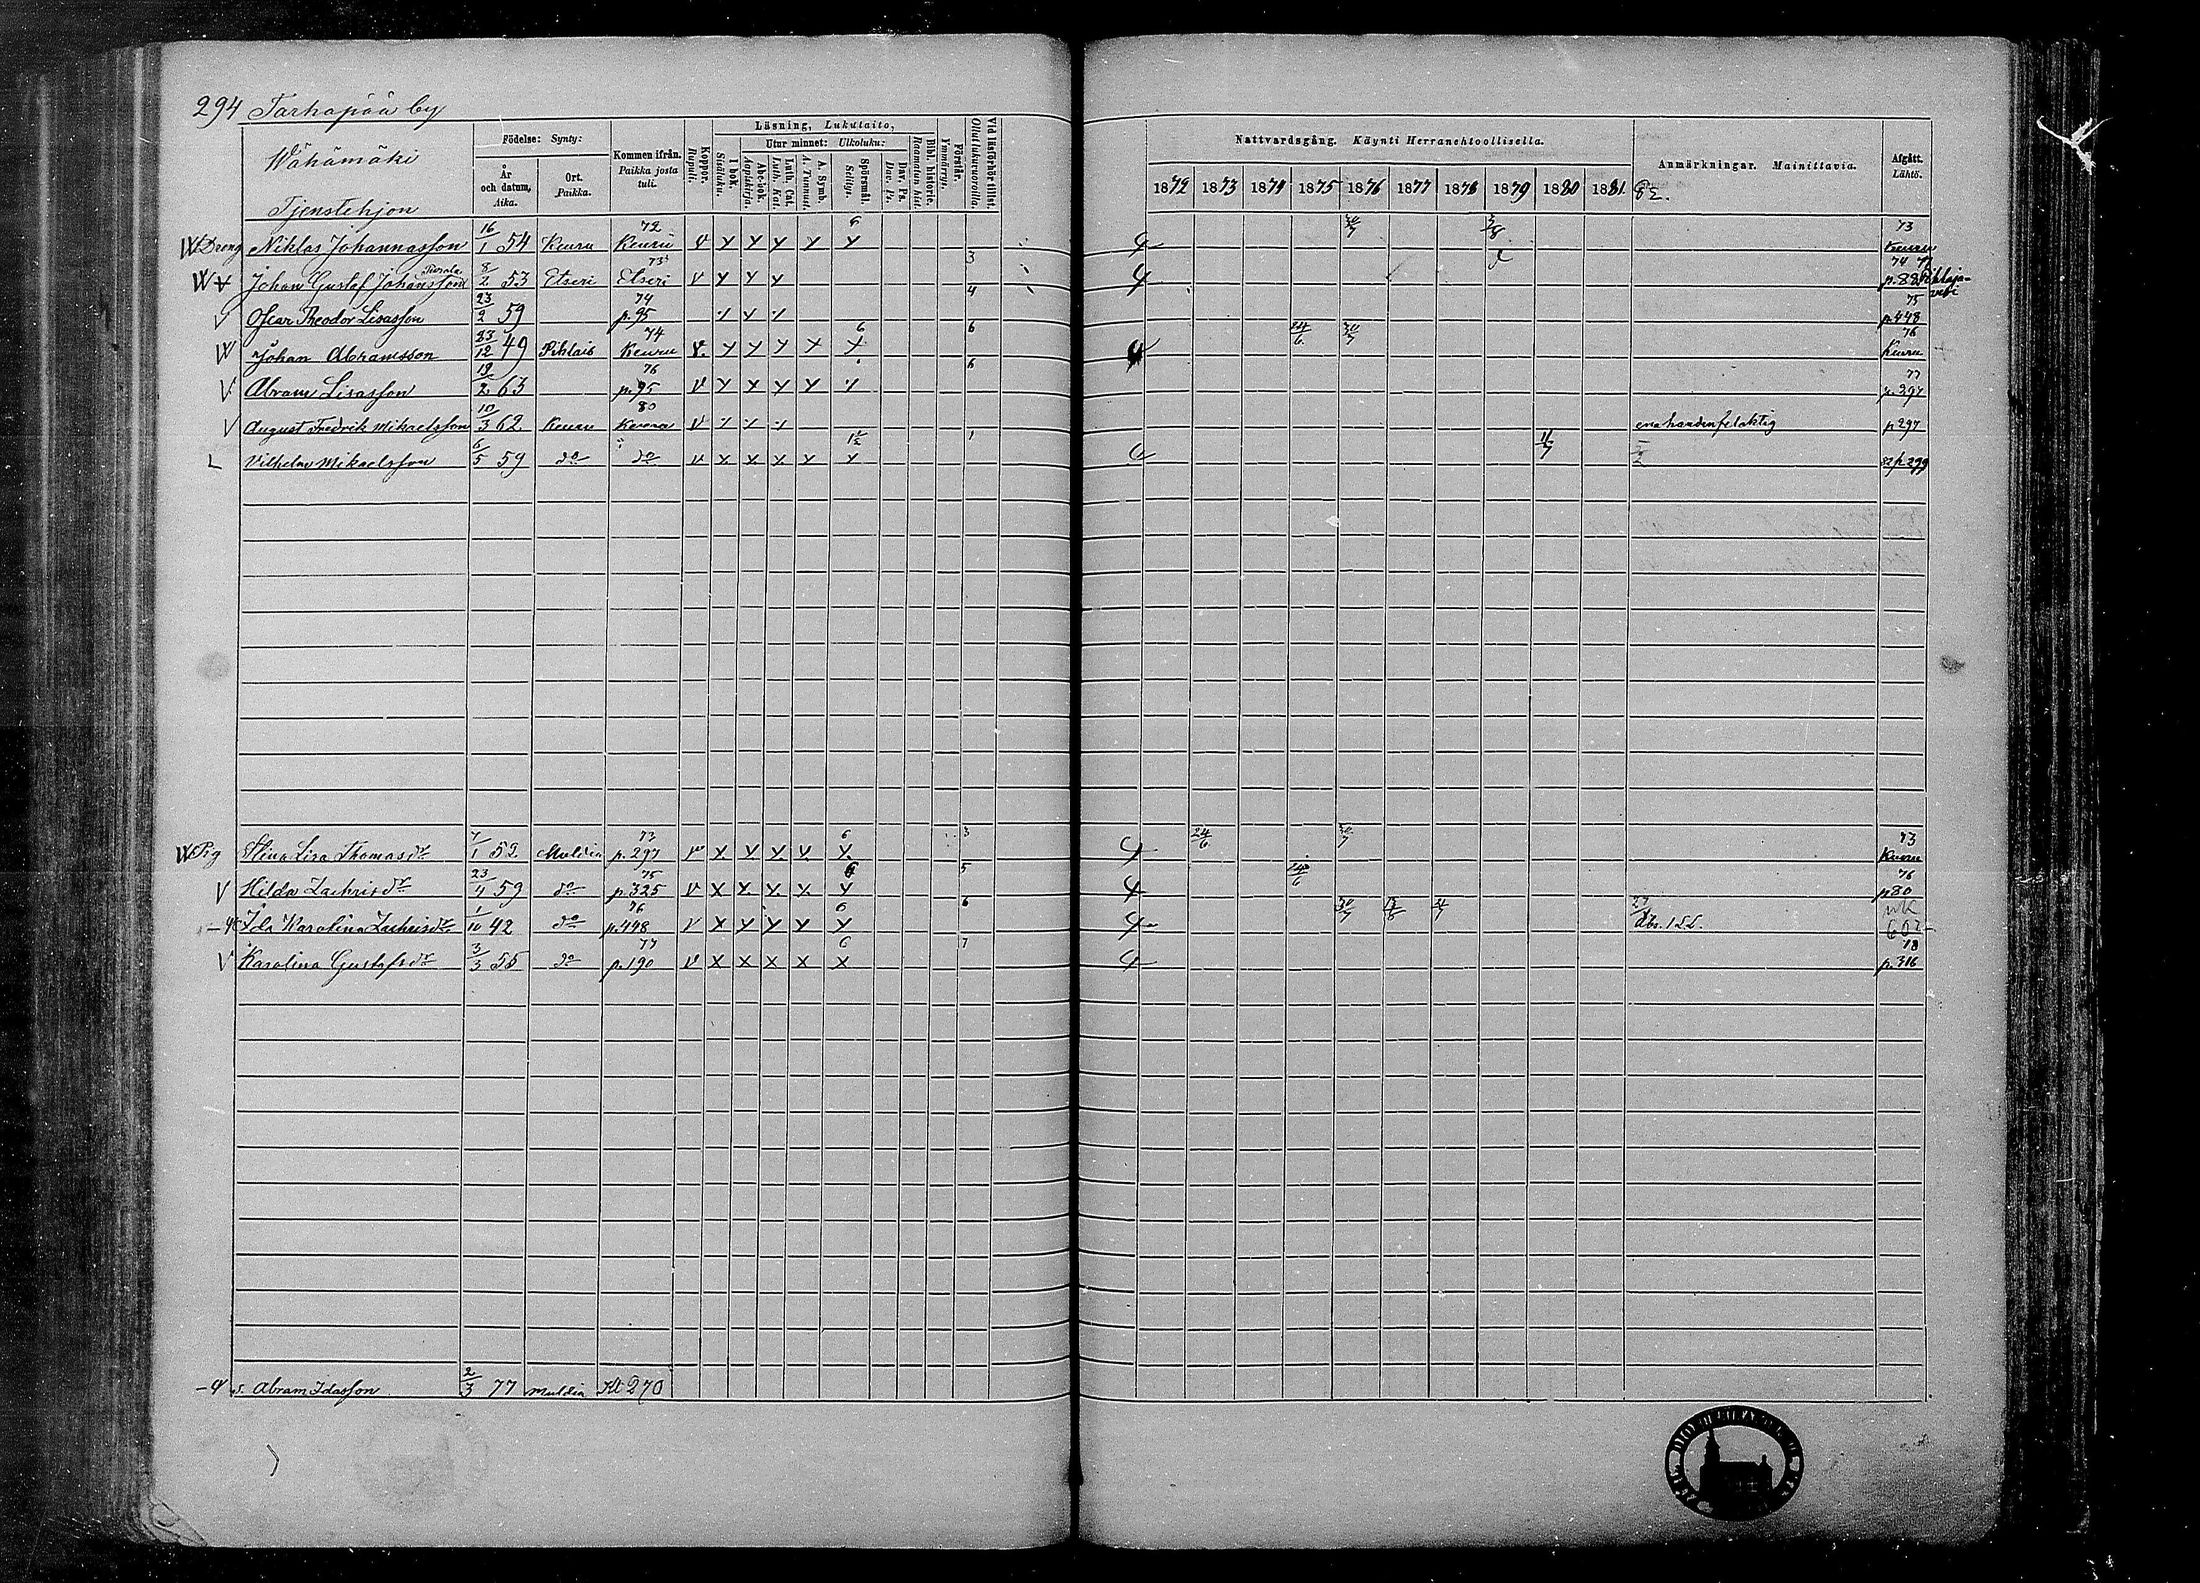 294 Tarhapää by
Wähämäki
Tjenstehjon
Födelse: Synty:
År och datum, Aika.
Ort. Paikka.
Kommen ifrån. Paikka josta tuli.
Koppor. Rupuli.
Läsning, Lukutaito,
I bok. Sisäluku.
Utur minnet: Ulkoluku:
Abc-bok. Aapiskirja.
Luth. Cat. Luth. Kat.
A. Symb. A. Tunnust.
Spörsmål. Selitys.
Dav. Ps. Dav. Ps.
Bibl. historie. Raamatun hist.
Förstår. Ymmärrys.
Vid läsförhör tillst. Ollut lukuvuorolla.
Nattvardsgång. Käynti Herranehtoollisella.
1872 1873 1874 1875 1876 1877 1878 1879 1880 1881
Anmärkningar. Mainittavia.
82.
Afgått. Lähtö.
Dreng Niklas Johannasson 16/1 54 Keuru 72 Keuru v x x x x x 6 4 30/7 3/8 73 Keuru
Johan Gustaf Johansson 8/2 53 Etseri 73 Etseri v x x x 3 4 74 p. 88
Oscar Theodor Lisasson 23/2 59 74 p. 95 4 75 p. 448
Johan Abramsson 23/12 49 Pihlais 74 Keuru v. x x x x x 6 6 4 24/6 30/7 76 Keuru
Abram Lisasson 19/2 63 76 p. 95 v x x x x 6 77 p. 297
August Fredrik Mikaelsson 10/3 62 Keuru 80 Keuru v p 297
Vilhelm Mikaelsson 6/5 59 do do v x x x x x 1 4 11/7 82 p 299
Pig Stina Lisa Thomasdr 7/1 52 Muldia 73 p. 297 v x x x x x 6 3 4 24/6 30/7 73 Keuru
Hilda Zachrisdr 23/4 59 do 75 p. 325 v x x x x x 6 5 4 24/6 76 p 80
Ida Karolina Zachrisdr 1/10 42 do 76 p. 448 v x x x x x 6 6 4 30/7
Karolina Gustafsdr 3/3 55 do 77 p. 190 v x x x x x 6 7 4 78 p. 316
s. Abram Idasson 2/3 77 Muldia Kl 270